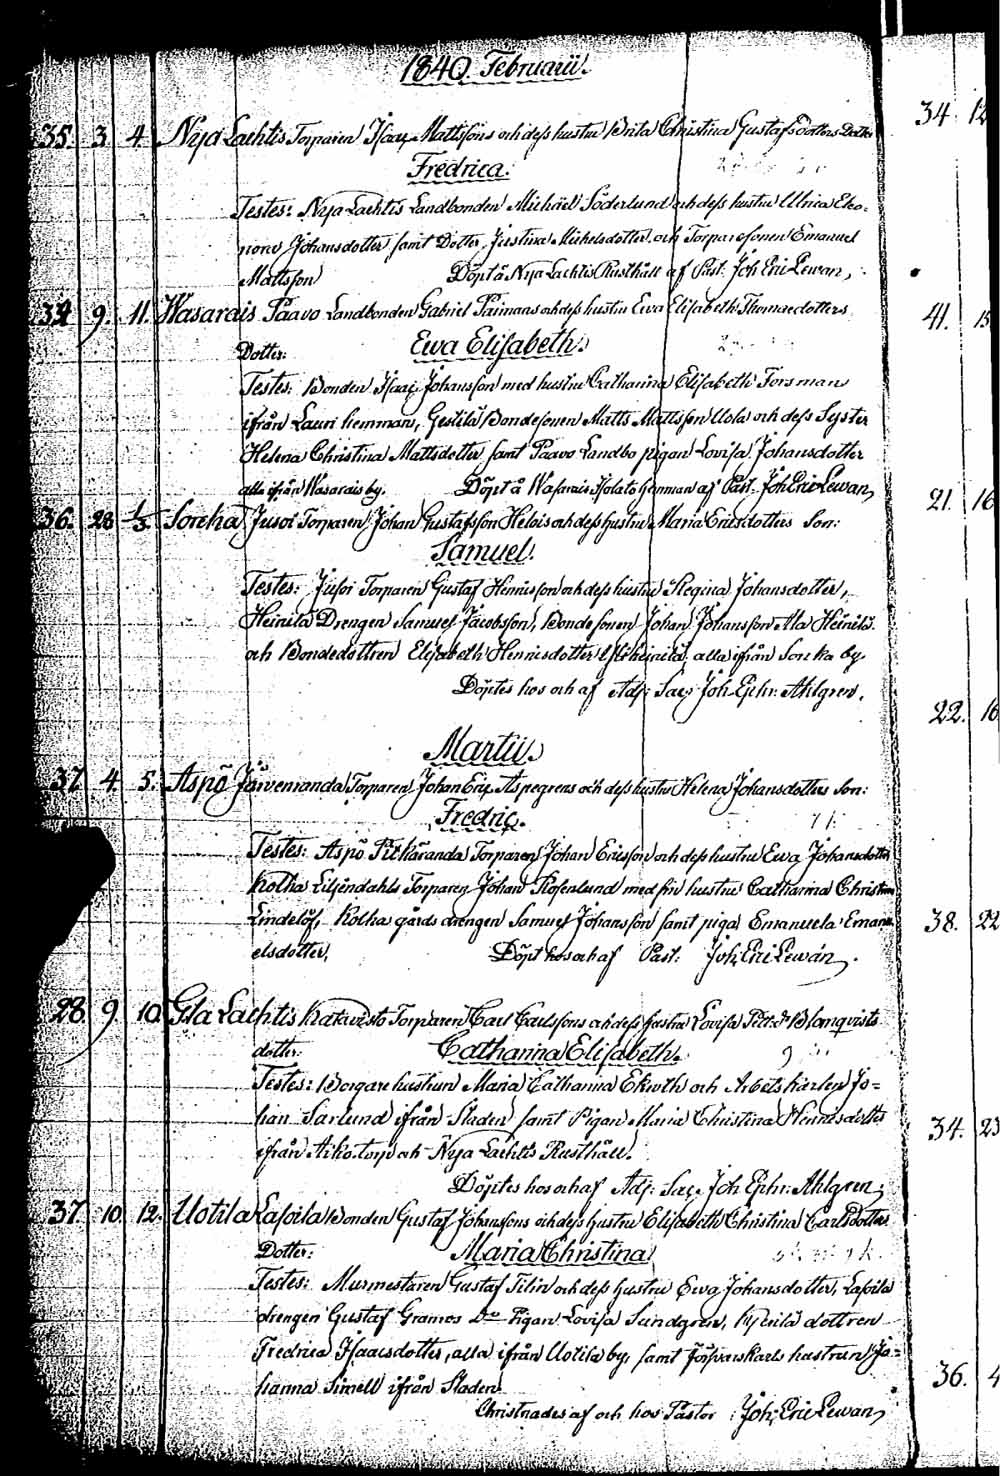 1840. Februarii.
35. 3. 4. Nya Lachtis Torparen Isaac Mattssons och dess hustru Brita Christina Gustafsdotters Dotter
Fredrica.
Testes: Nya Lachtis Landbonden Michael Söderlund och dess hustru Ulrica Eleo-
nora Johansdotter, samt Dotter Justina Michelsdotter, och Torparesonen Emanuel
Mattsson Döpt å Nya Lachtis Rusthåll af Past. Joh Eric Lewan,
34 9. 11. Wasarais Paavo Landbonden Gabriel Päivians och dess hustru Ewa Elisabeth Thomaedotters
Dotter: Ewa Elisabeth.
Testes: Bonden Isaac Johansson med hustru Catharina Elisabeth Forsman
ifrån Lauri hemman, Gestilä Bondesonen Matts Mattsson Uola och dess Syster
Helena Christina Mattsdotter samt Paavo Landbo pigan Lovisa Johansdotter
alla ifrån Wasarais by. Döpt å Wasarais hemman af Past. Joh Eric Lewan,
36. 28 1/3 Sorcka Jusoi Torparen Johan Gustafsson Helois och dess hustru Maria Ericsdotters Son:
Samuel.
Testes: Jusoi Torparen Gustaf Henricsson och dess hustru Regina Johansdotter,
Heinilä Drengen Samuel Jacobsson, Bondesonen Johan Johansson Ala Heinilä
och Bondedottren Elisabeth Henricsdotter Yliheinilä, alla ifrån Sorcka by.
Döptes hos och af Adj: Sac: Joh. Ephr: Ahlgren.
Martii.
37 4. 5. Aspö Järvenranda Torparen Johan Eric Aspegrens och dess hustru Helena Johansdotters Son:
Fredric.
Testes: Aspö Pitkäranda Torparen Johan Ericsson och dess hustru Ewa Johansdotter
Kolha Liljendahls Torparen Johan Rosenlund med sin hustru Catharina Christina
Lindelöf, Kolha gårds drengen Samuel Johansson samt piga Emanuela Emanu
elsdotter, Döpt hos och af Past. Joh. Eric Lewan.
28 9. 10. Gla Lachtis Torparen Carl Carlssons och dess hustru Lovisa Blomqvists
dotter: Catharina Elisabeth.
Testes: Borgare hustrun Maria Catharina Ekroth och Arbetskarlen Jo=
han Sarlund ifrån Staden samt Pigan Maria Christina Henricsdotter
ifrån Aiko torp och Nya Lachtis Rusthåll.
Döptes hos och af Adj: Sac: Joh Ephr: Ahlgren;
37 10 12. Uotila Lasoila Bonden Gustaf Johanssons och dess hustru Elisabeth Christina Carlsdotters
Dotter: Maria Christina
Testes: Murmestaren Gustaf Tilin och dess hustru Ewa Johansdotter, Lasoila
drengen Gustaf Gramos Do Pigan Lovisa Sundgren, dottren
Fredrica Isaacsdotter, alla ifrån Uotila by, samt hustrun Jo=
hanna Simell ifrån Staden
Christnades af och hos Pastor Joh. Eric Lewan,
34. 12
41. 15
21. 16
22. 16
38. 22
34. 23
36. 4